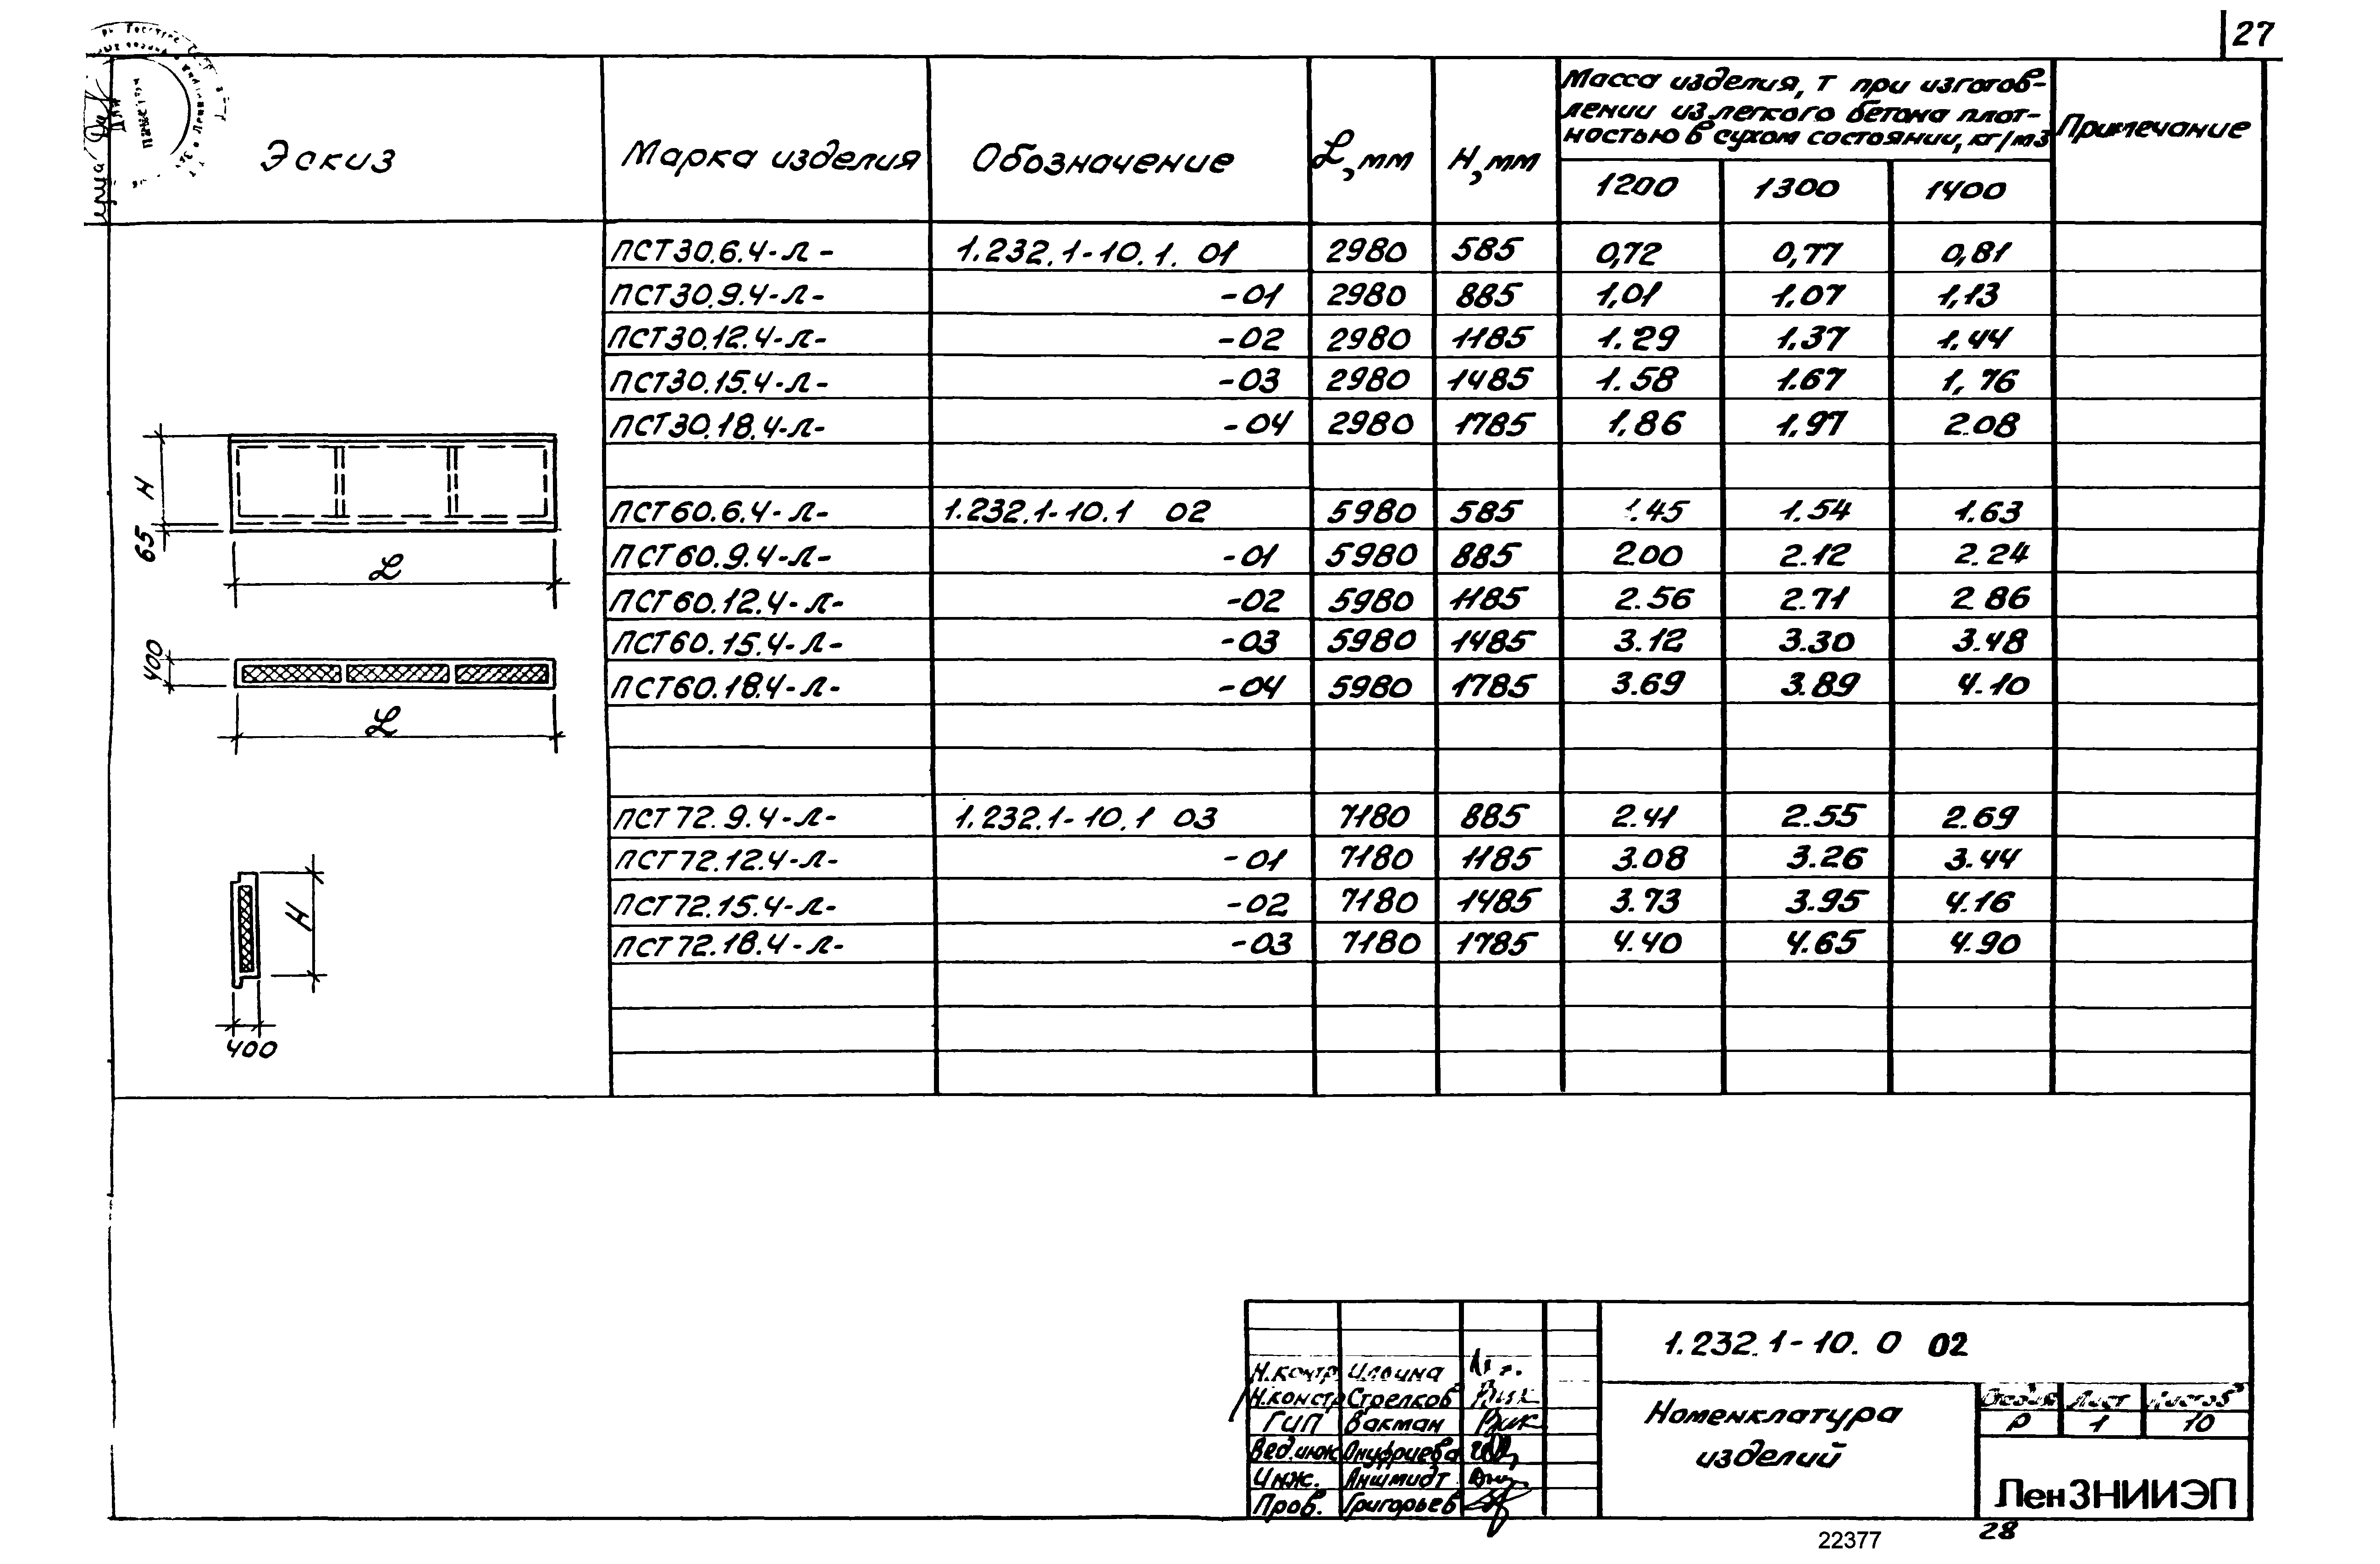 27
Эскиз
Марка изделия
Обозначение
L, мм
H, мм
Масса изделия, т при изготов-
лении из легкого бетона плот-
ностью в сухом состоянии, кг/м3
1200 1300 1400
Примечание
ПСТ30.6.4-л- 1.232.1-10.1. 01 2980 585 0,72 0,77 0,81
ПСТ30.9.4-л- -01 2980 885 1,01 1,07 1,13
ПСТ30.12.4-л- -02 2980 1185 1.29 1.37 1.44
ПСТ30.15.4-л- -03 2980 1485 1.58 1.67 1,76
ПСТ30.18.4-л- -04 2980 1785 1,86 1,97 2.08
ПСТ60.6.4-л- 1.232.1-10.1 02 5980 585 1.45 1.54 1.63
ПСТ60.9.4-л- -01 5980 885 2.00 2.12 2.24
ПСТ60.12.4-л- -02 5980 1185 2.56 2.71 2 86
ПСТ60.15.4-л- -03 5980 1485 3.12 3.30 3.48
ПСТ60.18.4-л- -04 5980 1785 3.69 3.89 4.10
ПСТ72.9.4-л- 1.232.1-10.1 03 7180 885 2.41 2.55 2.69
ПСТ72.12.4-л- -01 7180 1185 3.08 3.26 3.44
ПСТ72.15.4-л- -02 7180 1485 3.73 3.95 4.16
ПСТ72.18.4-л- -03 7180 1785 4.40 4.65 4.90
H
65
L
400
L
H
400
1.232.1-10. 0 02
Н.контр Ильина
Н.констр Стрелков
ГИП Вакман
Вед.инж Онуфриева
Инж. Аншмидт
Пров. Григорьев
Номенклатура
изделий
Стадия Лист Листов
Р 1 10
ЛенЗНИИЭП
22377
28